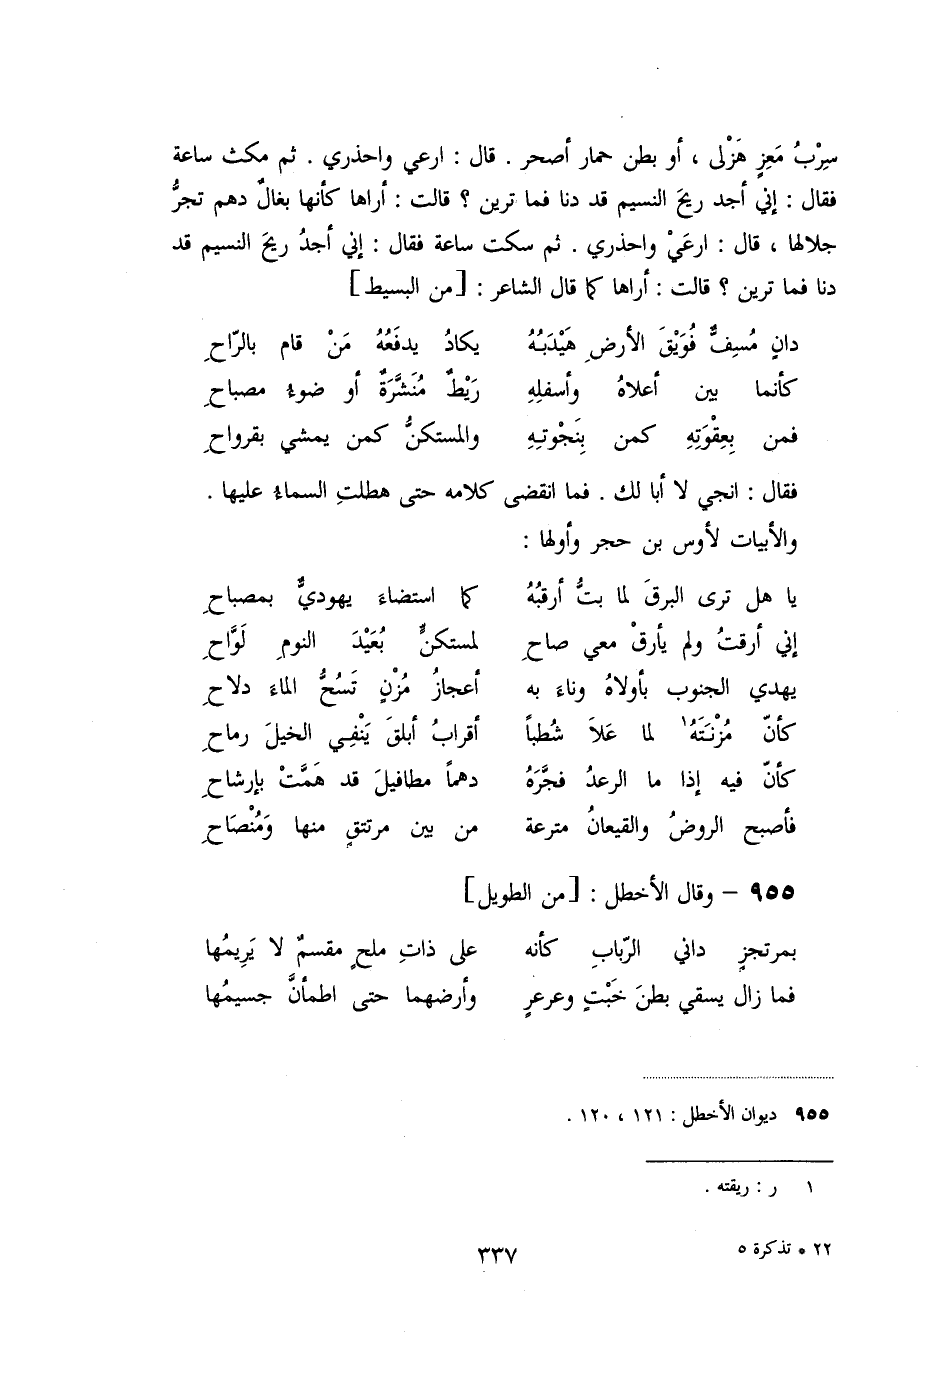 سِرْبُ مَعِزٍ هَزْلى ، أو بطن حمار أصحر . قال : ارعي واحذري . ثم مكث ساعة
فقال : إني أجد ريحَ النسيم قد دنا فما ترين ؟ قالت : أراها كأنها بغالٌ دهم تجرُّ
جلالها ، قال : ارعَيْ واحذري . ثم سكت ساعة فقال : إني أجدُ ريحَ النسيم قد
دنا فما ترين ؟ قالت : أراها كما قال الشاعر : [من البسيط]
دانٍ مُسِفٌّ فُوَيْقَ الأرضِ هَيْدَبُهُ يكادُ يدفَعُهُ مَنْ قام بالرّاحِ
كأنما بين أعلاهُ وأسفلِهِ رَيْطٌ مُنَشَّرَةٌ أو ضوءُ مصباحِ
فمن بِعِقْوَتِهِ كمن بِنَجْوتِهِ والمستكنُّ كمن يمشي بقرواحِ
فقال : انجي لا أبا لك . فما انقضى كلامه حتى هطلتِ السماءُ عليها .
والأبيات لأوس بن حجر وأولها :
يا هل ترى البرقَ لما بتُّ أرقبُهُ كما استضاءَ يهوديٌّ بمصباحِ
إني أرقتُ ولم يأرقْ معي صاحِ لمستكنٍّ بُعَيْدَ النومِ لَوَّاحِ
يهدي الجنوب بأولاهُ وناءَ به أعجازُ مُزْنٍ تَسُحُّ الماءَ دلاحِ
كأنّ مُزْنَتَهُ١ لما عَلاَ شُطباً أقرابُ أبلقَ يَنْفِي الخيلَ رماحِ
كأنّ فيه إذا ما الرعدُ فجَّرَهُ دهماً مطافيلَ قد هَمَّتْ بإرشاحِ
فأصبح الروضُ والقيعانُ مترعة من بين مرتتقٍ منها وَمُنْصَاحِ
٩٥٥ – وقال الأخطل : [من الطويل]
بمرتجزٍ داني الرّبابِ كأنه على ذاتِ ملحٍ مقسمٌ لا يَرِيمُها
فما زال يسقي بطنَ خَبْتٍ وعرعرٍ وأرضهما حتى اطمأنَّ جسيمُها
٩٥٥ ديوان الأخطل : ١٢١ ، ١٢٠ .
١ ر : ريقته .
٢٢ • تذكرة ٥
٣٣٧